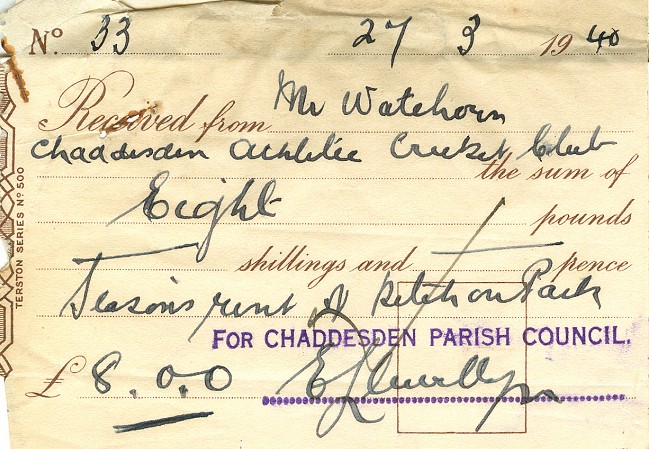 No 33 27 3 1940
Received from Mr Watehorn
Chaddesden Athletic Cricket Club
the sum of
Eight pounds
— shillings and — pence
Season's rent of pitch on Park
FOR CHADDESDEN PARISH COUNCIL.
£ 8.0.0
TERSTON SERIES No 500